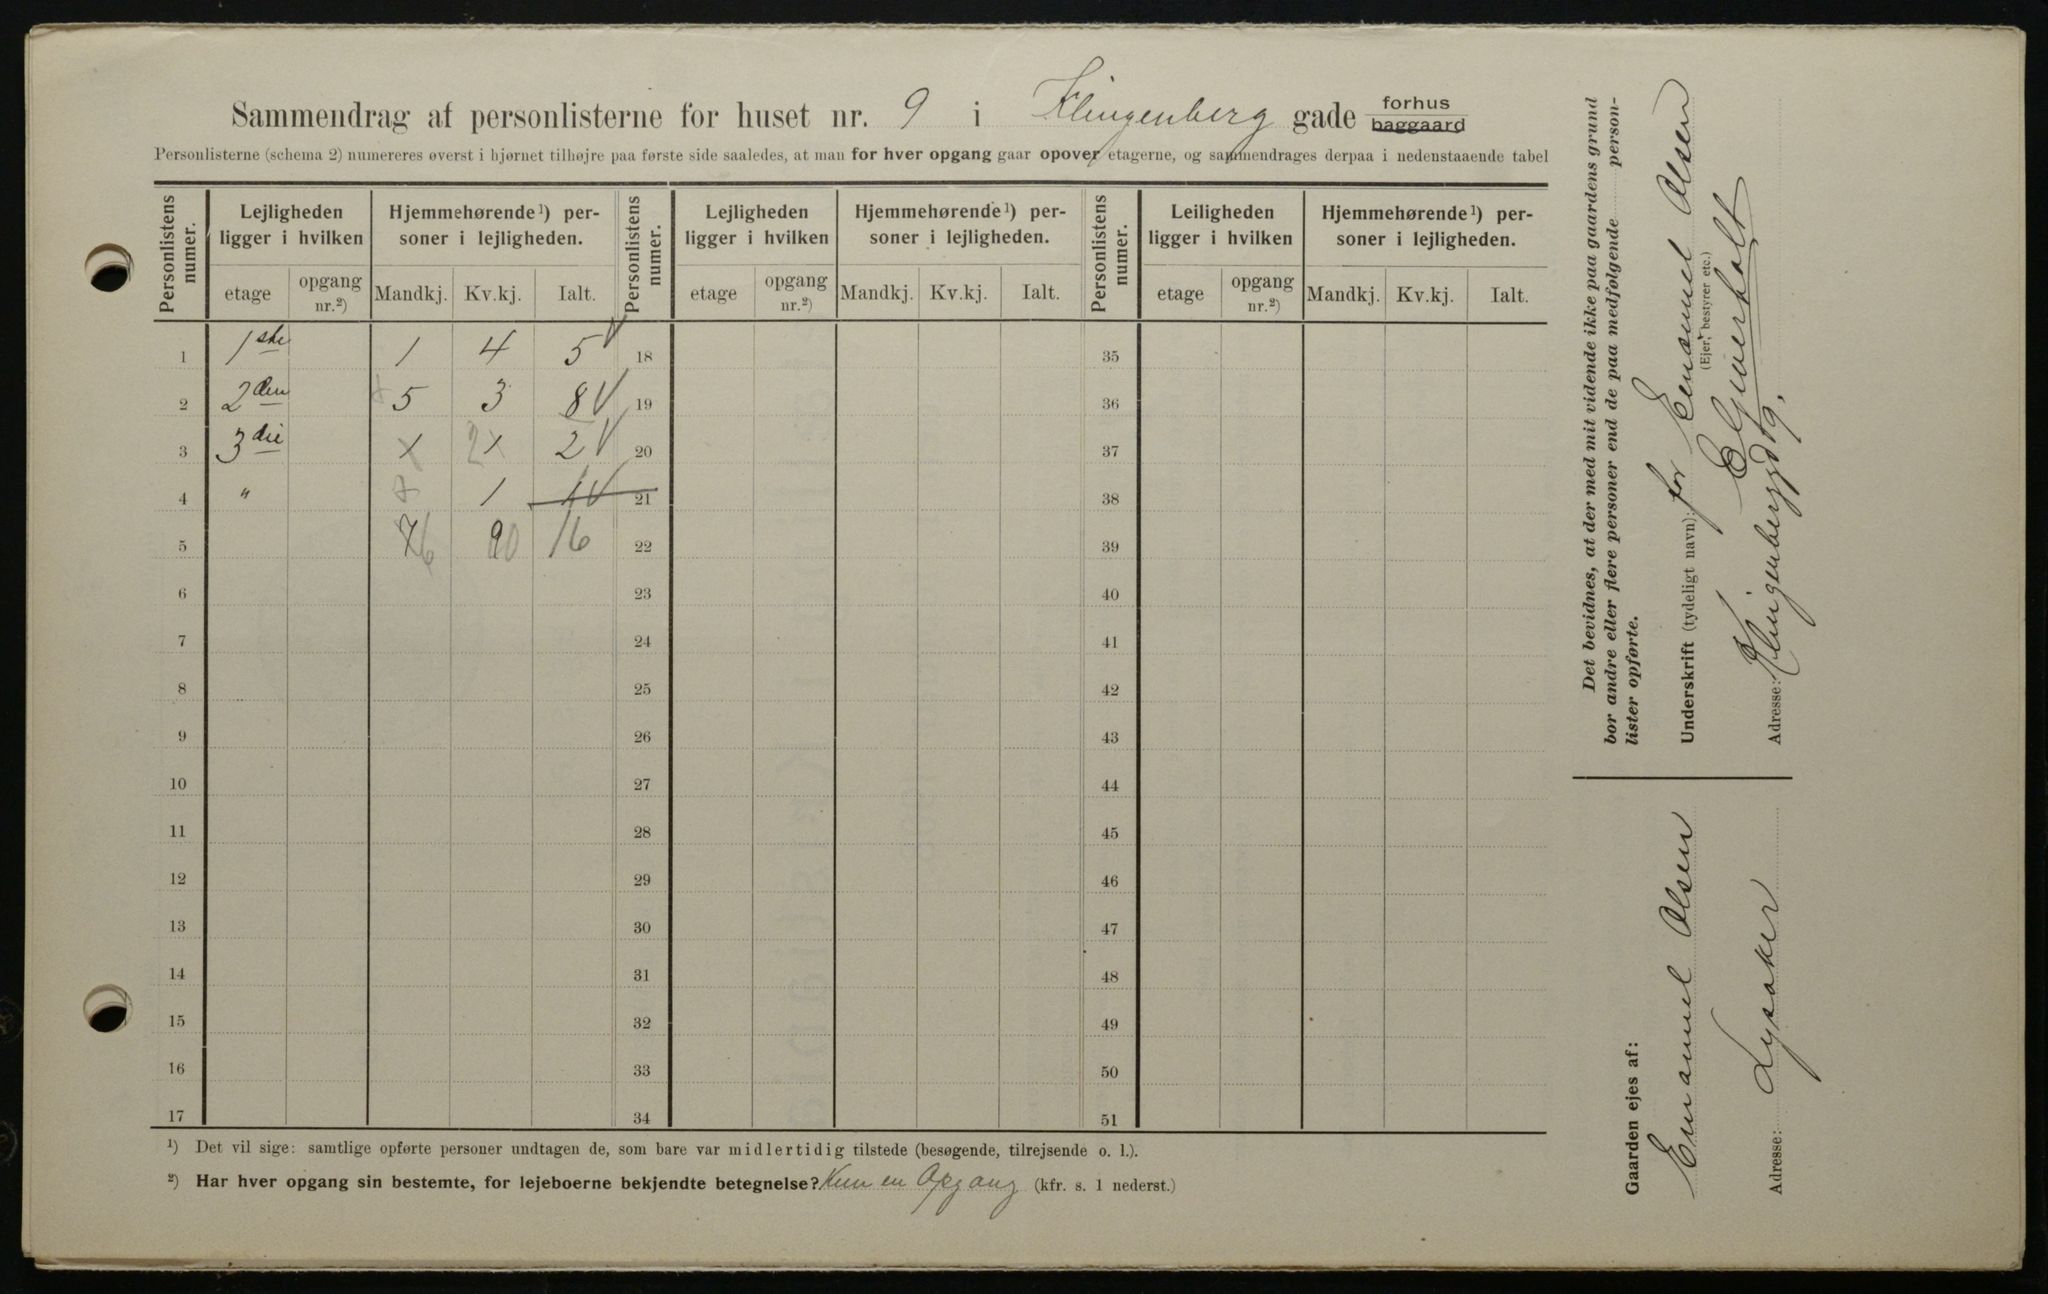 Sammendrag af personlisterne for huset nr. 9 i Klingenberg gade forhus baggaard
Personlisterne (schema 2) numereres øverst i hjørnet tilhøjre paa første side saaledes, at man for hver opgang gaar opover etagerne, og sammendrages derpaa i nedenstaaende tabel
Personlistens numer. Lejligheden ligger i hvilken Hjemmehørende¹) personer i lejligheden. Personlistens numer. Lejligheden ligger i hvilken Hjemmehørende¹) personer i lejligheden. Personlistens numer. Leiligheden ligger i hvilken Hjemmehørende¹) personer i lejligheden.
etage opgang nr.²) Mandkj. Kv.kj. Ialt. etage opgang nr.²) Mandkj. Kv.kj. Ialt. etage opgang nr.²) Mandkj. Kv.kj. Ialt.
1 1ste 1 4 5 18 35
2 2den 5 3 8 19 36
3 3die x 2 x 2 20 37
4 " 1 1 21 38
5 7 6 9 10 16 22 39
6 23 40
7 24 41
8 25 42
9 26 43
10 27 44
11 28 45
12 29 46
13 30 47
14 31 48
15 32 49
16 33 50
17 34 51
¹) Det vil sige: samtlige opførte personer undtagen de, som bare var midlertidig tilstede (besøgende, tilrejsende o. l.).
²) Har hver opgang sin bestemte, for lejeboerne bekjendte betegnelse? Kun en Opgang (kfr. s. 1 nederst.)
Det bevidnes, at der med mit vidende ikke paa gaardens grund
bor andre eller flere personer end de paa medfølgende personlister opførte.
Underskrift (tydeligt navn): for Emanuel Olsen
(Ejer, bestyrer etc.)
Adresse: Klingenberggd 9.
Gaarden ejes af:
Emanuel Olsen
Adresse: Lysaker